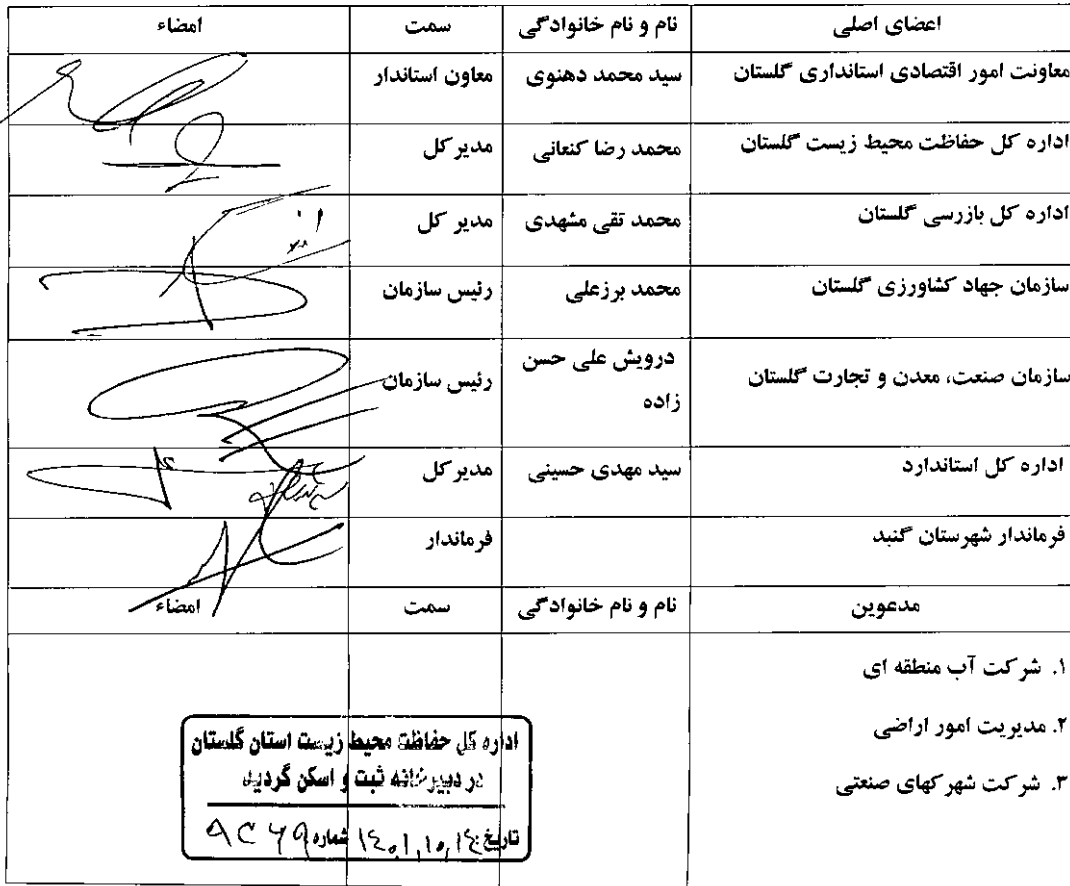 اعضای اصلی نام و نام خانوادگی سمت امضاء
معاونت امور اقتصادی استانداری گلستان سید محمد دهنوی معاون استاندار
اداره کل حفاظت محیط زیست گلستان محمد رضا کنعانی مدیر کل
اداره کل بازرسی گلستان محمد تقی مشهدی مدیر کل
سازمان جهاد کشاورزی گلستان محمد برزعلی رئیس سازمان
سازمان صنعت، معدن و تجارت گلستان درویش علی حسن رئیس سازمان
زاده
اداره کل استاندارد سید مهدی حسینی مدیر کل
فرماندار شهرستان گنبد فرماندار
مدعوین نام و نام خانوادگی سمت امضاء
۱. شرکت آب منطقه ای
۲. مدیریت امور اراضی
۳. شرکت شهرکهای صنعتی
اداره کل حفاظت محیط زیست استان گلستان
در دبیرخانه ثبت و اسکن گردید
تاریخ: ۱۴۰۱,۱۰,۱۴ شماره